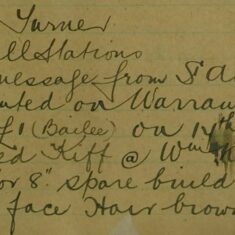 Turner
ll Stations
message from S A
uted on Warran
f 1 (Bailee) on 14th
ed Kiff @ Wm
or 8". spare build
face Hair brow